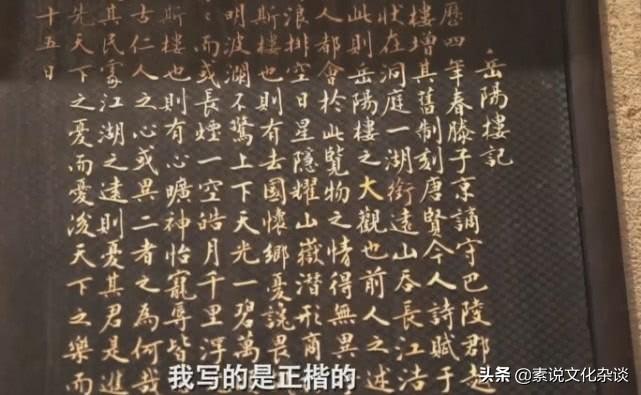 岳陽樓記
歷四年春滕子京謫守巴陵郡越
樓增其舊制刻唐賢今人詩賦于
狀在洞庭一湖銜遠山吞長江浩
此則岳陽樓之大觀也前人之述
人都會於此覽物之情得無異
浪排空日星隱耀山嶽潛形商
斯樓也則有去國懷鄉憂讒畏
明波瀾不驚上下天光一碧萬
々而或長煙一空皓月千里浮
斯樓也則有心曠神怡寵辱皆
古仁人之心或異二者之為何哉
其民處江湖之遠則憂其君是進
先天下之憂而憂後天下之樂而
十五日
我写的是正楷的
头条 @素说文化杂谈